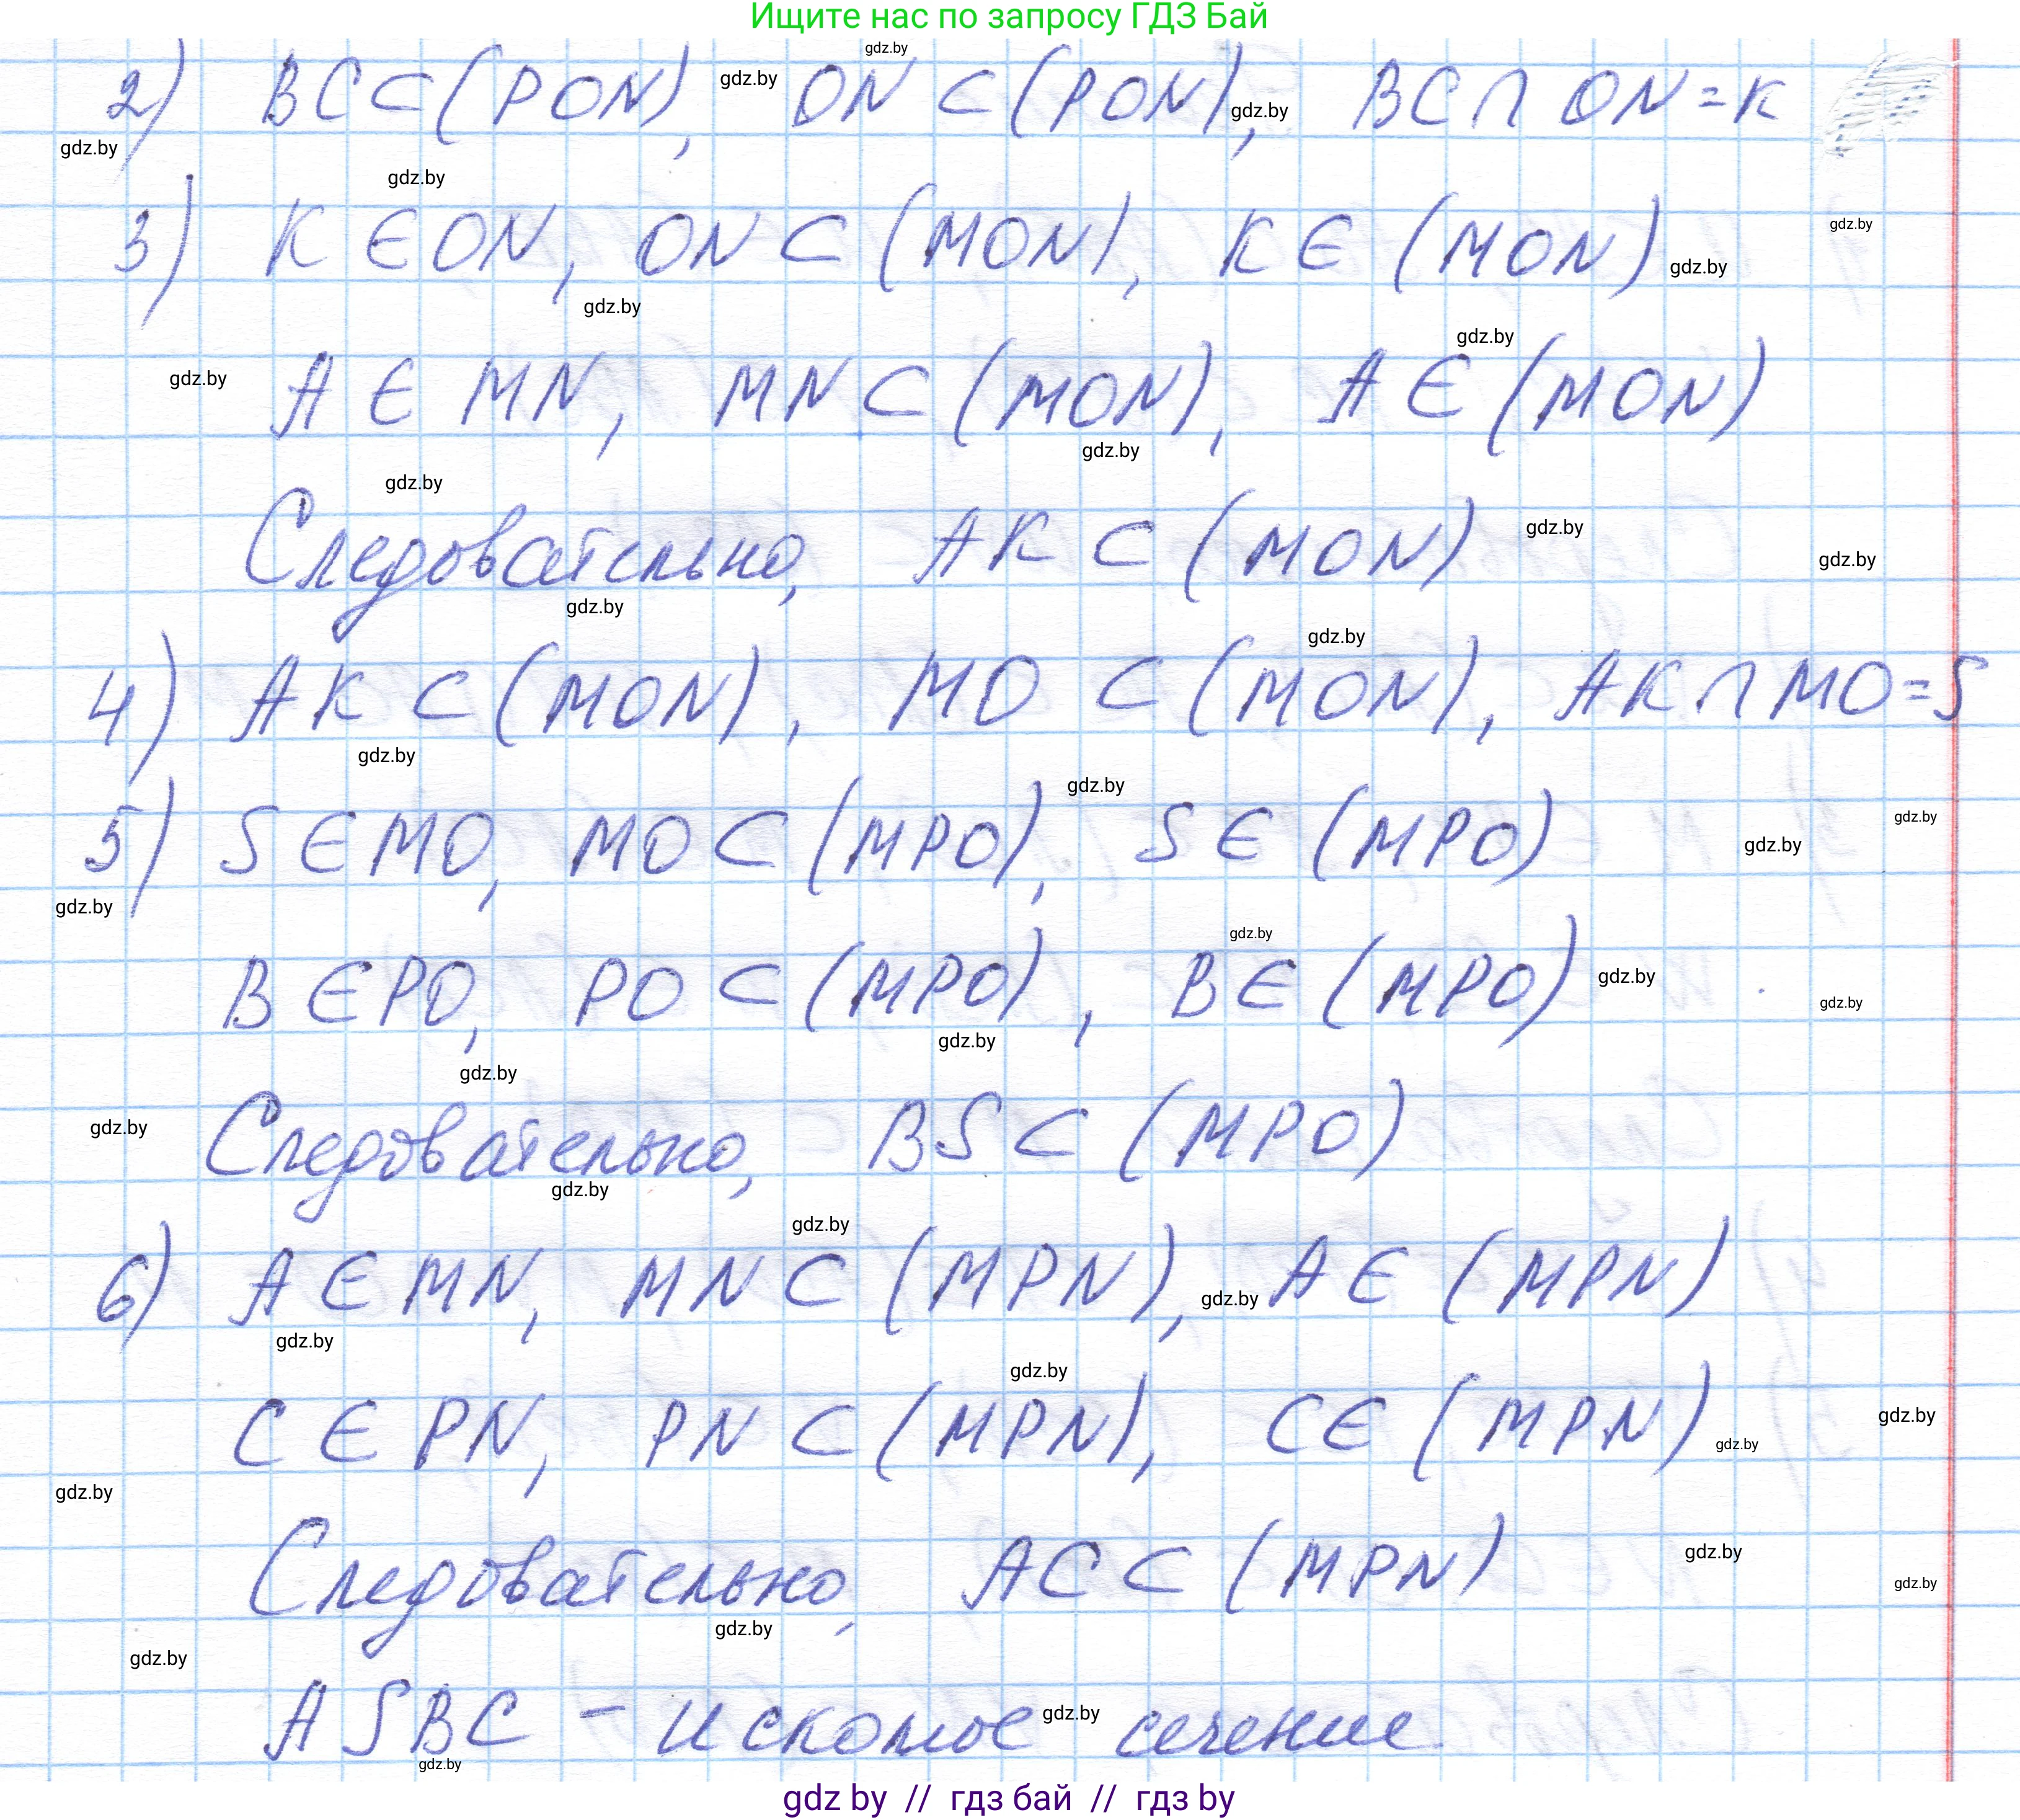 Ищите нас по запросу ГДЗ Бай
gdz.by
2) BC ⊂ (PON), gdz.by ON ⊂ (PON), gdz.by BC ∩ ON = K
gdz.by
gdz.by
3) K ∈ ON, ON ⊂ (MON), K ∈ (MON) gdz.by
gdz.by
gdz.by
gdz.by
gdz.by A ∈ MN, MN ⊂ (MON), A ∈ (MON)
gdz.by
gdz.by
Следовательно, AK ⊂ (MON) gdz.by
gdz.by
gdz.by
gdz.by
4) AK ⊂ (MON), MO ⊂ (MON), AK ∩ MO = S
gdz.by
gdz.by
5) S ∈ MO, MO ⊂ (MPO), S ∈ (MPO) gdz.by
gdz.by
gdz.by
gdz.by
B ∈ PO, PO ⊂ (MPO), B ∈ (MPO) gdz.by
gdz.by
gdz.by
gdz.by
gdz.by Следовательно, BS ⊂ (MPO)
gdz.by
gdz.by
6) A ∈ MN, MN ⊂ (MPN), gdz.by A ∈ (MPN)
gdz.by
gdz.by
C ∈ PN, PN ⊂ (MPN), C ∈ (MPN) gdz.by
gdz.by
gdz.by
Следовательно, AC ⊂ (MPN) gdz.by
gdz.by
gdz.by
gdz.by
ASBC – искомое gdz.by сечение
gdz.by
gdz by // гдз бай // гдз by